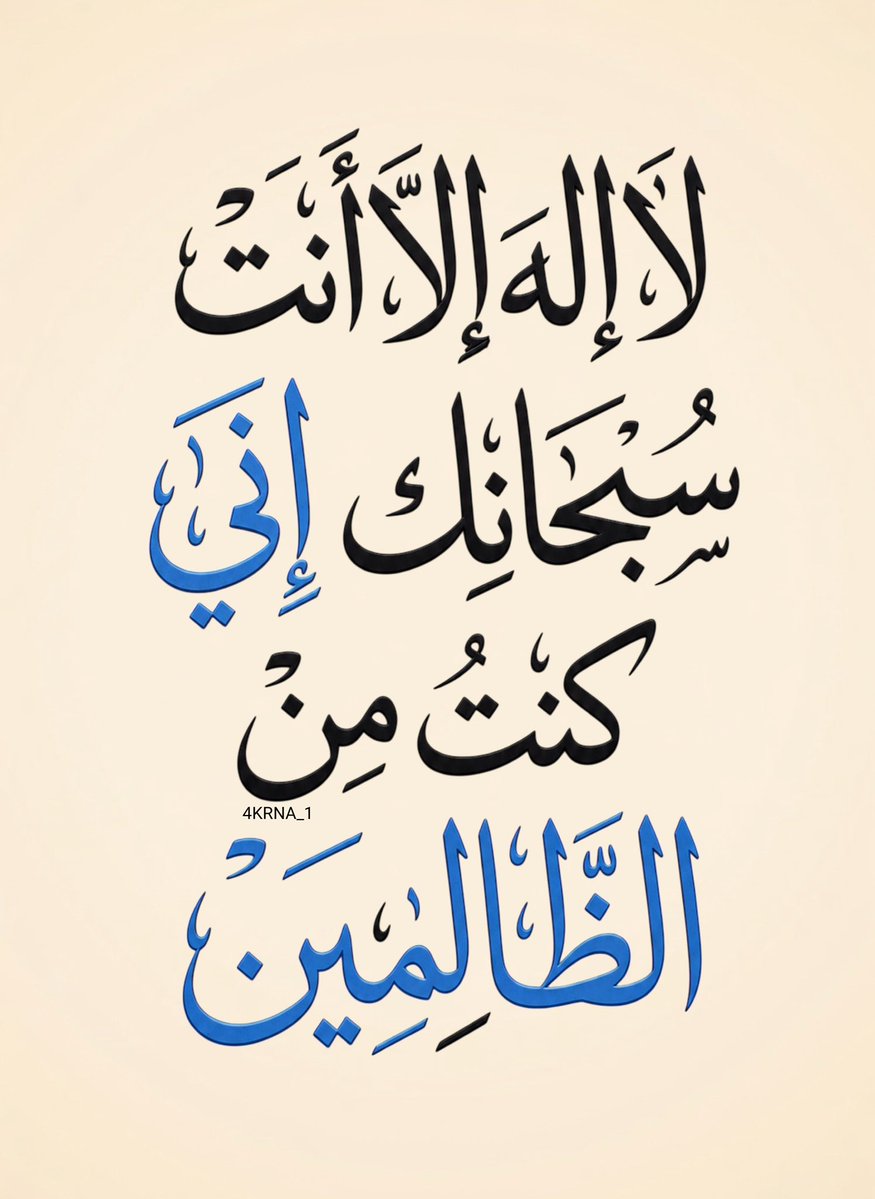 لَا إِلهَ إِلَّا أَنتَ
سُبْحَانِك إِنَي
كنتُ مِنْ
4KRNA_1
الظَّالِمِينَْ